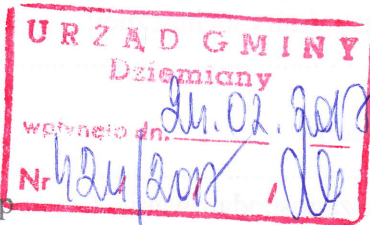 URZĄD GMINY
Dziemiany
wpłynęło dn. 24.02.2017
Nr 424/2017
p